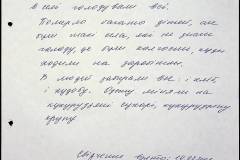 В селі голодували всі.
Померло багато дітей, але
були такі села, які не знали
голоду, це були колгоспи, куди
ходили на заробітки.
В людей забирали все: і хліб
і худобу. Одежу міняли на
кукурудзяні сухарі, кукурудзяну
крупу
Свідчення